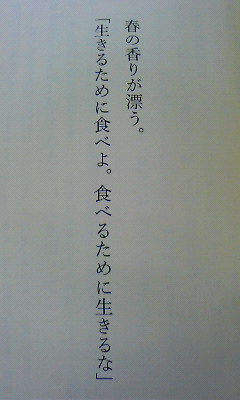 春の香りが漂う。
「生きるために食べよ。食べるために生きるな」